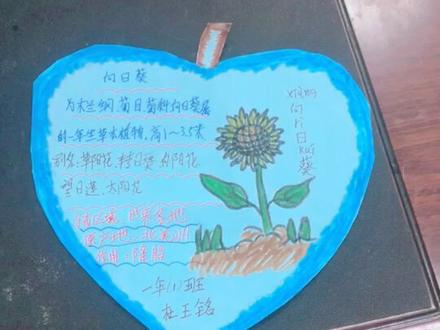 向日葵
为木兰纲菊目菊科向日葵属
的一年生草本植物,高1~3.5米
别名:朝阳花、转日莲、向阳花、
望日莲、太阳花
原产地:北美洲
一年(1)班
杜玉铭
xiàng
向
rì
日
kuí
葵